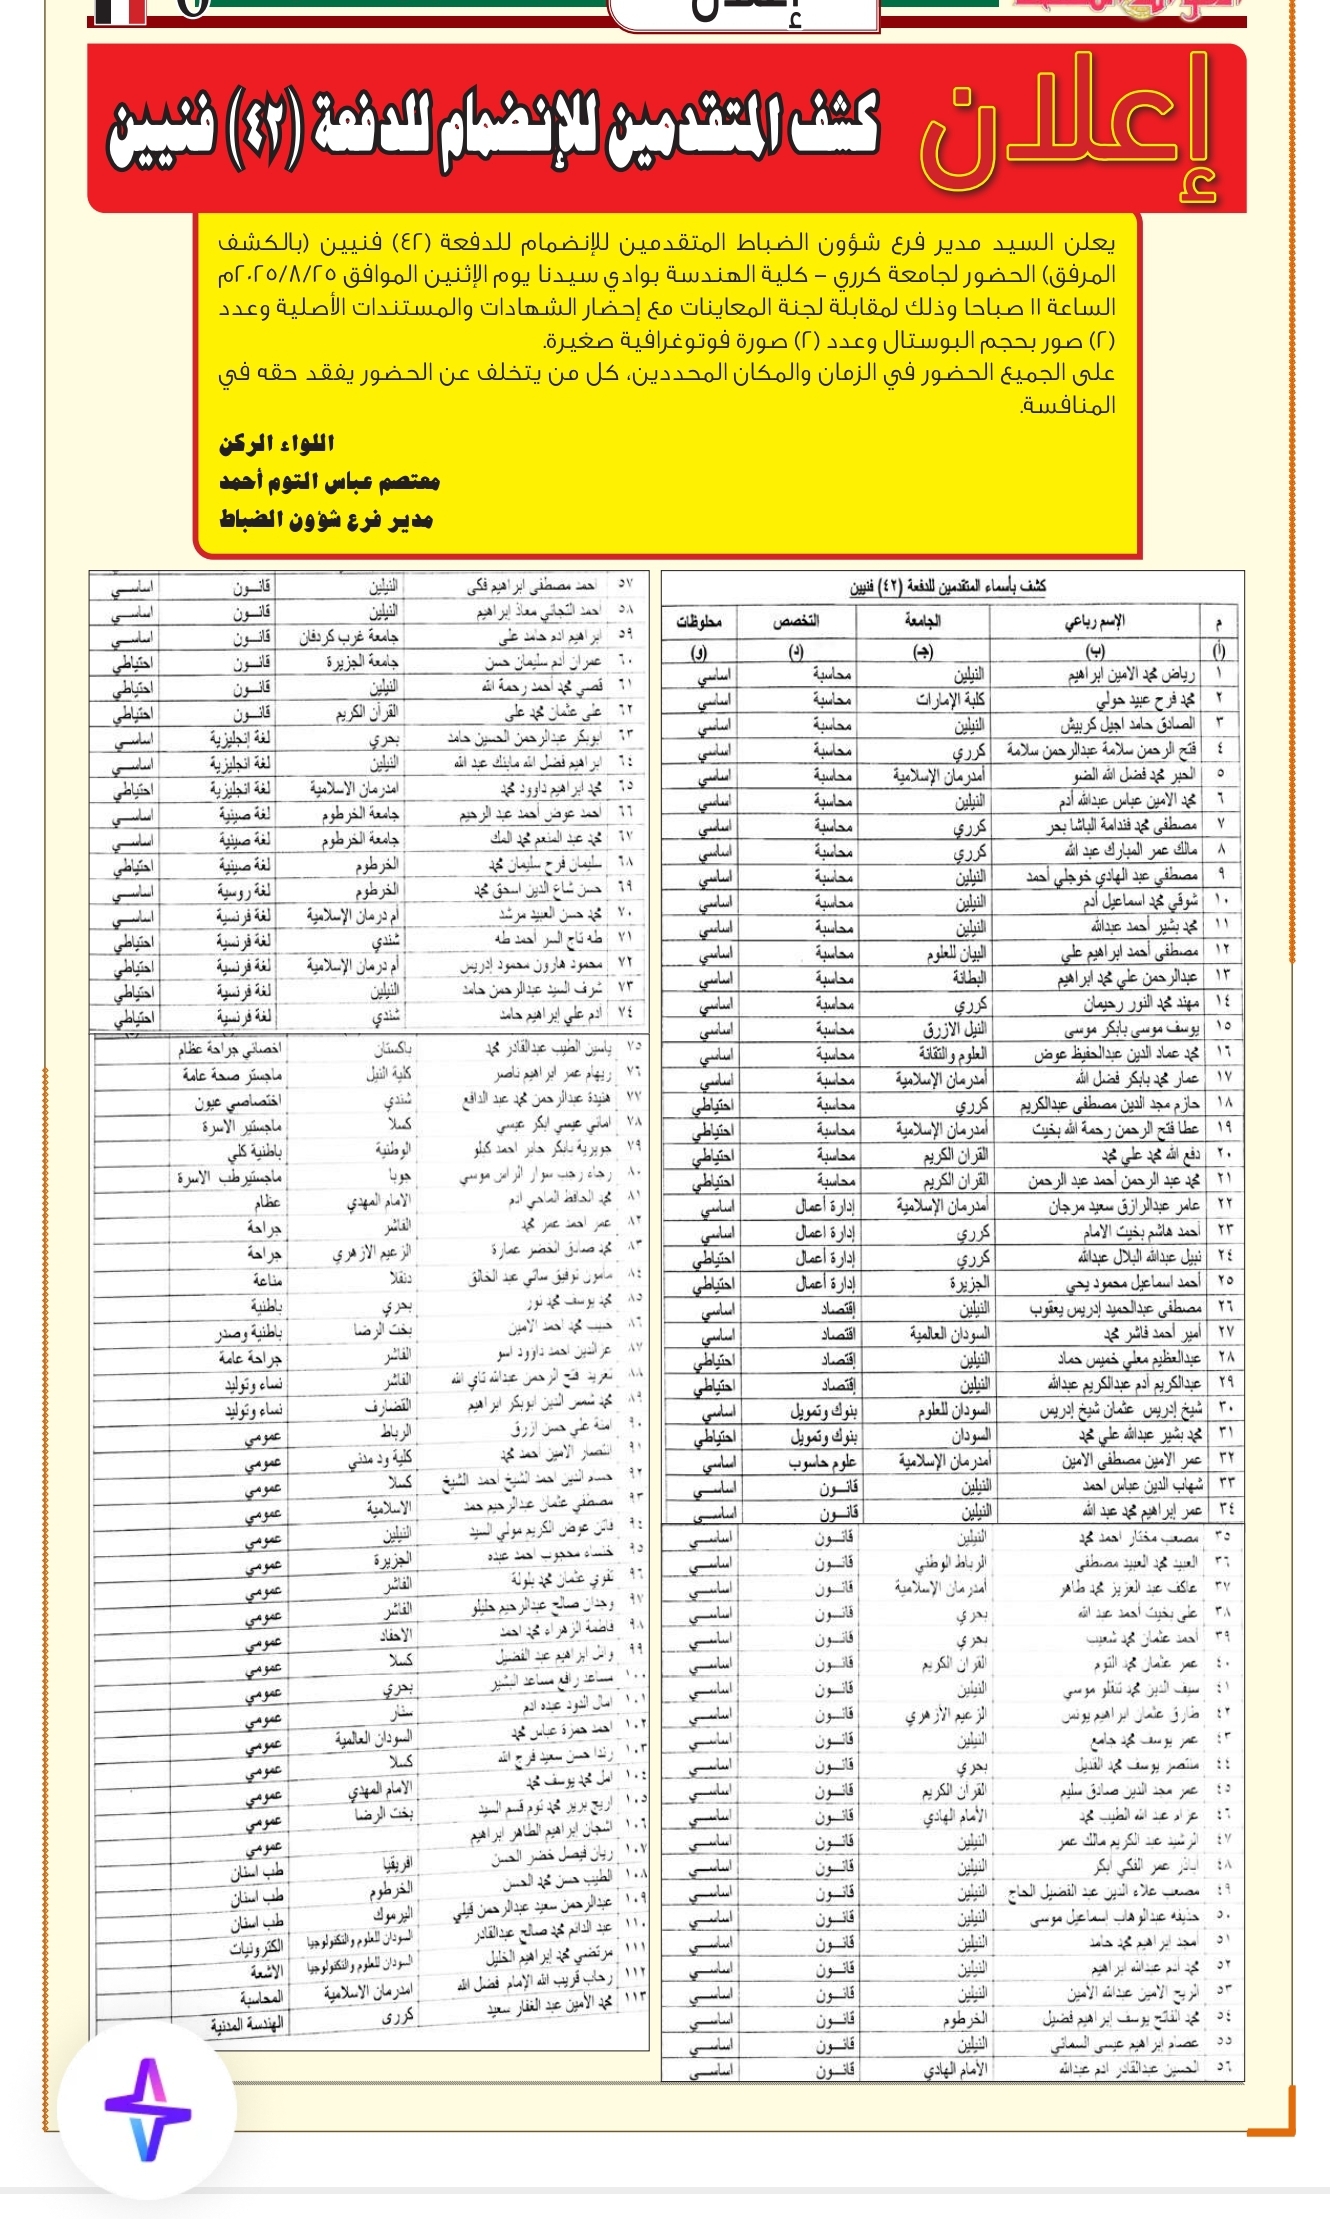 إعلان
إعلان
كشف المتقدمين للإنضمام للدفعة (٤٢) فنيين
يعلن السيد مدير فرع شؤون الضباط المتقدمين للإنضمام للدفعة (٤٢) فنيين (بالكشف
المرفق) الحضور لجامعة كرري – كلية الهندسة بوادي سيدنا يوم الإثنين الموافق ٢٠٢٥/٨/٢٥م
الساعة ١١ صباحا وذلك لمقابلة لجنة المعاينات مع إحضار الشهادات والمستندات الأصلية وعدد
(٢) صور بحجم البوستال وعدد (٢) صورة فوتوغرافية صغيرة.
على الجميع الحضور في الزمان والمكان المحددين، كل من يتخلف عن الحضور يفقد حقه في
المنافسة.
اللواء الركن
معتصم عباس التوم أحمد
مدير فرع شؤون الضباط
كشف بأسماء المتقدمين للدفعة (٤٢) فنيين
م الإسم رباعي الجامعة التخصص محلوظات
(أ) (ب) (جـ) (د) (و)
١ رياض محمد الامين ابراهيم النيلين محاسبة اساسي
٢ محمد فرح عبيد حولي كلية الإمارات محاسبة أساسي
٣ الصادق حامد اجيل كربيش النيلين محاسبة أساسي
٤ فتح الرحمن سلامة عبدالرحمن سلامة كرري محاسبة أساسي
٥ الحبر محمد فضل الله الضو أمدرمان الإسلامية محاسبة أساسي
٦ محمد الامين عباس عبدالله أدم النيلين محاسبة أساسي
٧ مصطفى محمد فندامة الباشا بحر كرري محاسبة أساسي
٨ مالك عمر المبارك عبد الله كرري محاسبة أساسي
٩ مصطفي عبد الهادي خوجلي أحمد النيلين محاسبة أساسي
١٠ شوقي محمد اسماعيل أدم النيلين محاسبة أساسي
١١ محمد بشير أحمد عبدالله النيلين محاسبة أساسي
١٢ مصطفى أحمد ابراهيم علي البيان للعلوم محاسبة أساسي
١٣ عبدالرحمن علي محمد ابراهيم البطانة محاسبة أساسي
١٤ مهند محمد النور رحيمان كرري محاسبة أساسي
١٥ يوسف موسى بابكر موسى النيل الازرق محاسبة أساسي
١٦ محمد عماد الدين عبدالحفيظ عوض العلوم والتقانة محاسبة أساسي
١٧ عمار محمد بابكر فضل الله أمدرمان الإسلامية محاسبة أساسي
١٨ حازم مجد الدين مصطفى عبدالكريم كرري محاسبة احتياطي
١٩ عطا فتح الرحمن رحمة الله بخيت أمدرمان الإسلامية محاسبة احتياطي
٢٠ دفع الله محمد علي محمد القران الكريم محاسبة احتياطي
٢١ محمد عبد الرحمن أحمد عبد الرحمن القران الكريم محاسبة احتياطي
٢٢ عامر عبدالرازق سعيد مرجان أمدرمان الإسلامية إدارة أعمال اساسي
٢٣ أحمد هاشم بخيت الامام كرري إدارة اعمال اساسي
٢٤ نبيل عبدالله البلال عبدالله كرري إدارة أعمال احتياطي
٢٥ أحمد اسماعيل محمود يحي الجزيرة إدارة أعمال احتياطي
٢٦ مصطفى عبدالحميد إدريس يعقوب النيلين إقتصاد اساسي
٢٧ أمير أحمد فاشر محمد السودان العالمية اقتصاد اساسي
٢٨ عبدالعظيم معلي خميس حماد النيلين إقتصاد احتياطي
٢٩ عبدالكريم أدم عبدالكريم عبدالله النيلين إقتصاد احتياطي
٣٠ شيخ إدريس عثمان شيخ إدريس السودان للعلوم بنوك وتمويل اساسي
٣١ محمد بشير عبدالله علي محمد السودان بنوك وتمويل احتياطي
٣٢ عمر الامين مصطفى الامين أمدرمان الإسلامية علوم حاسوب اساسي
٣٣ شهاب الدين عباس احمد النيلين قانـــون اساســي
٣٤ عمر إبراهيم محمد عبد الله النيلين قانـــون اساســي
٣٥ مصعب مختار احمد محمد النيلين قانـــون اساســي
٣٦ العبيد محمد العبيد مصطفى الرباط الوطني قانـــون اساســي
٣٧ عاكف عبد العزيز محمد طاهر أمدرمان الإسلامية قانـــون اساســي
٣٨ على بخيت أحمد عبد الله بحري قانـــون اساســي
٣٩ أحمد عثمان محمد شعيب بحري قانـــون اساســي
٤٠ عمر عثمان محمد التوم القرآن الكريم قانـــون اساســي
٤١ سيف الدين محمد تنقلو موسي النيلين قانـــون اساســي
٤٢ طارق عثمان ابراهيم يونس الزعيم الأزهري قانـــون اساســي
٤٣ عمر يوسف محمد جامع النيلين قانـــون اساســي
٤٤ منتصر يوسف محمد القنديل بحري قانـــون اساســي
٤٥ عمر مجد الدين صادق سليم القرآن الكريم قانـــون اساســي
٤٦ عزام عبد الله الطيب محمد الأمام الهادي قانـــون اساســي
٤٧ الرشيد عبد الكريم مالك عمر النيلين قانـــون اساســي
٤٨ اباذر عمر الفكي ابكر النيلين قانـــون اساســي
٤٩ مصعب علاء الدين عبد الفضيل الحاج النيلين قانـــون اساســي
٥٠ حذيفه عبدالوهاب اسماعيل موسى النيلين قانـــون اساســي
٥١ أمجد ابراهيم محمد حامد النيلين قانـــون اساســي
٥٢ محمد أدم عبدالله ابراهيم النيلين قانـــون اساســي
٥٣ الريح الامين عبدالله الأمين النيلين قانـــون اساســي
٥٤ محمد الفاتح يوسف إبراهيم فضيل الخرطوم قانـــون اساســي
٥٥ عصام ابراهيم عيسى السماني النيلين قانـــون اساســي
٥٦ الحسين عبدالقادر ادم عبدالله الأمام الهادي قانـــون اساســي
٥٧ احمد مصطفى ابراهيم فكى النيلين قانـــون اساســي
٥٨ احمد التجاني معاذ ابراهيم النيلين قانـــون اساســي
٥٩ ابراهيم ادم حامد على جامعة غرب كردفان قانـــون اساســي
٦٠ عمران أدم سليمان حسن جامعة الجزيرة قانـــون احتياطي
٦١ قصي محمد أحمد رحمة الله النيلين قانـــون احتياطي
٦٢ على عثمان محمد على القرأن الكريم قانـــون احتياطي
٦٣ ابوبكر عبدالرحمن الحسين حامد بحري لغة إنجليزية اساســي
٦٤ ابراهيم فضل الله مابنك عبد الله النيلين لغة انجليزية اساســي
٦٥ محمد ابراهيم داوود محمد امدرمان الاسلامية لغة انجليزية احتياطي
٦٦ أحمد عوض أحمد عبد الرحيم جامعة الخرطوم لغة صينية اساســي
٦٧ محمد عبد المنعم محمد المك جامعة الخرطوم لغة صينية اساســي
٦٨ سليمان فرح سليمان محمد الخرطوم لغة صينية احتياطي
٦٩ حسن شاع الدين اسحق محمد الخرطوم لغة روسية اساســي
٧٠ محمد حسن العبيد مرشد أم درمان الإسلامية لغة فرنسية اساســي
٧١ طه تاج السر أحمد طه شندي لغة فرنسية احتياطي
٧٢ محمود هارون محمود إدريس أم درمان الإسلامية لغة فرنسية احتياطي
٧٣ شرف السيد عبدالرحمن حامد النيلين لغة فرنسية احتياطي
٧٤ ادم علي إبراهيم حامد شندي لغة فرنسية احتياطي
٧٥ ياسين الطيب عبدالقادر محمد باكستان اخصائي جراحة عظام
٧٦ ريهام عمر ابراهيم ناصر كلية النيل ماجستر صحة عامة
٧٧ هنيدة عبدالرحمن محمد عبد الدافع شندي اختصاصي عيون
٧٨ اماني عيسي ابكر عيسي كسلا ماجستير الاسرة
٧٩ جويرية بابكر جابر احمد كبلو الوطنية باطنية كلي
٨٠ رجاء رجب سوار الراس موسي جوبا ماجستيرطب الاسرة
٨١ محمد الحافظ الماحي ادم الامام المهدي عظام
٨٢ عمر احمد عمر محمد الفاشر جراحة
٨٣ محمد صادق الخضر عمارة الزعيم الازهري جراحة
٨٤ مأمون توفيق ساتي عبد الخالق دنقلا مناعة
٨٥ محمد يوسف محمد نور بحري باطنية
٨٦ حبيب محمد احمد الامين بخت الرضا باطنية وصدر
٨٧ عزالدين احمد داوود اسو الفاشر جراحة عامة
٨٨ تغريد فتح الرحمن عبدالله تاي الله الفاشر نساء وتوليد
٨٩ محمد شمس الدين ابوبكر ابراهيم القضارف نساء وتوليد
٩٠ امنة علي حسن ازرق الرباط عمومي
٩١ انتصار الامين أحمد محمد كلية ود مدني عمومي
٩٢ حسام الدين احمد الشيخ أحمد الشيخ كسلا عمومي
٩٣ مصطفي عثمان عبدالرحيم حمد الاسلامية عمومي
٩٤ فاتن عوض الكريم مولي السيد النيلين عمومي
٩٥ خنساء محجوب احمد عبده الجزيرة عمومي
٩٦ تقوي عثمان محمد بلولة الفاشر عمومي
٩٧ وجدان صالح عبدالرحيم حليلو الفاشر عمومي
٩٨ فاطمة الزهراء محمد احمد الاحفاد عمومي
٩٩ وائل ابراهيم عبد الفضيل كسلا عمومي
١٠٠ مساعد رافع مساعد البشير بحري عمومي
١٠١ امال الدود عبده ادم سنار عمومي
١٠٢ احمد حمزة عباس محمد السودان العالمية عمومي
١٠٣ رندا حسن سعيد فرج الله كسلا عمومي
١٠٤ امل محمد يوسف محمد الامام المهدي عمومي
١٠٥ اريج برير محمد توم قسم السيد بخت الرضا عمومي
١٠٦ اشجان ابراهيم الطاهر ابراهيم عمومي
١٠٧ ريان فيصل خضر الحسن افريقيا طب اسنان
١٠٨ الطيب حسن محمد الحسن الخرطوم طب اسنان
١٠٩ عبدالرحمن سعيد عبدالرحمن قيلي اليرموك طب اسنان
١١٠ عبد الدائم محمد صالح عبدالقادر السودان للعلوم والتكنولوجيا الكترونيات
١١١ مرتضي محمد ابراهيم الخليل السودان للعلوم والتكنولوجيا الاشعة
١١٢ رحاب قريب الله الإمام فضل الله امدرمان الاسلامية المحاسبة
١١٣ محمد الأمين عبد الغفار سعيد كررى الهندسة المدنية